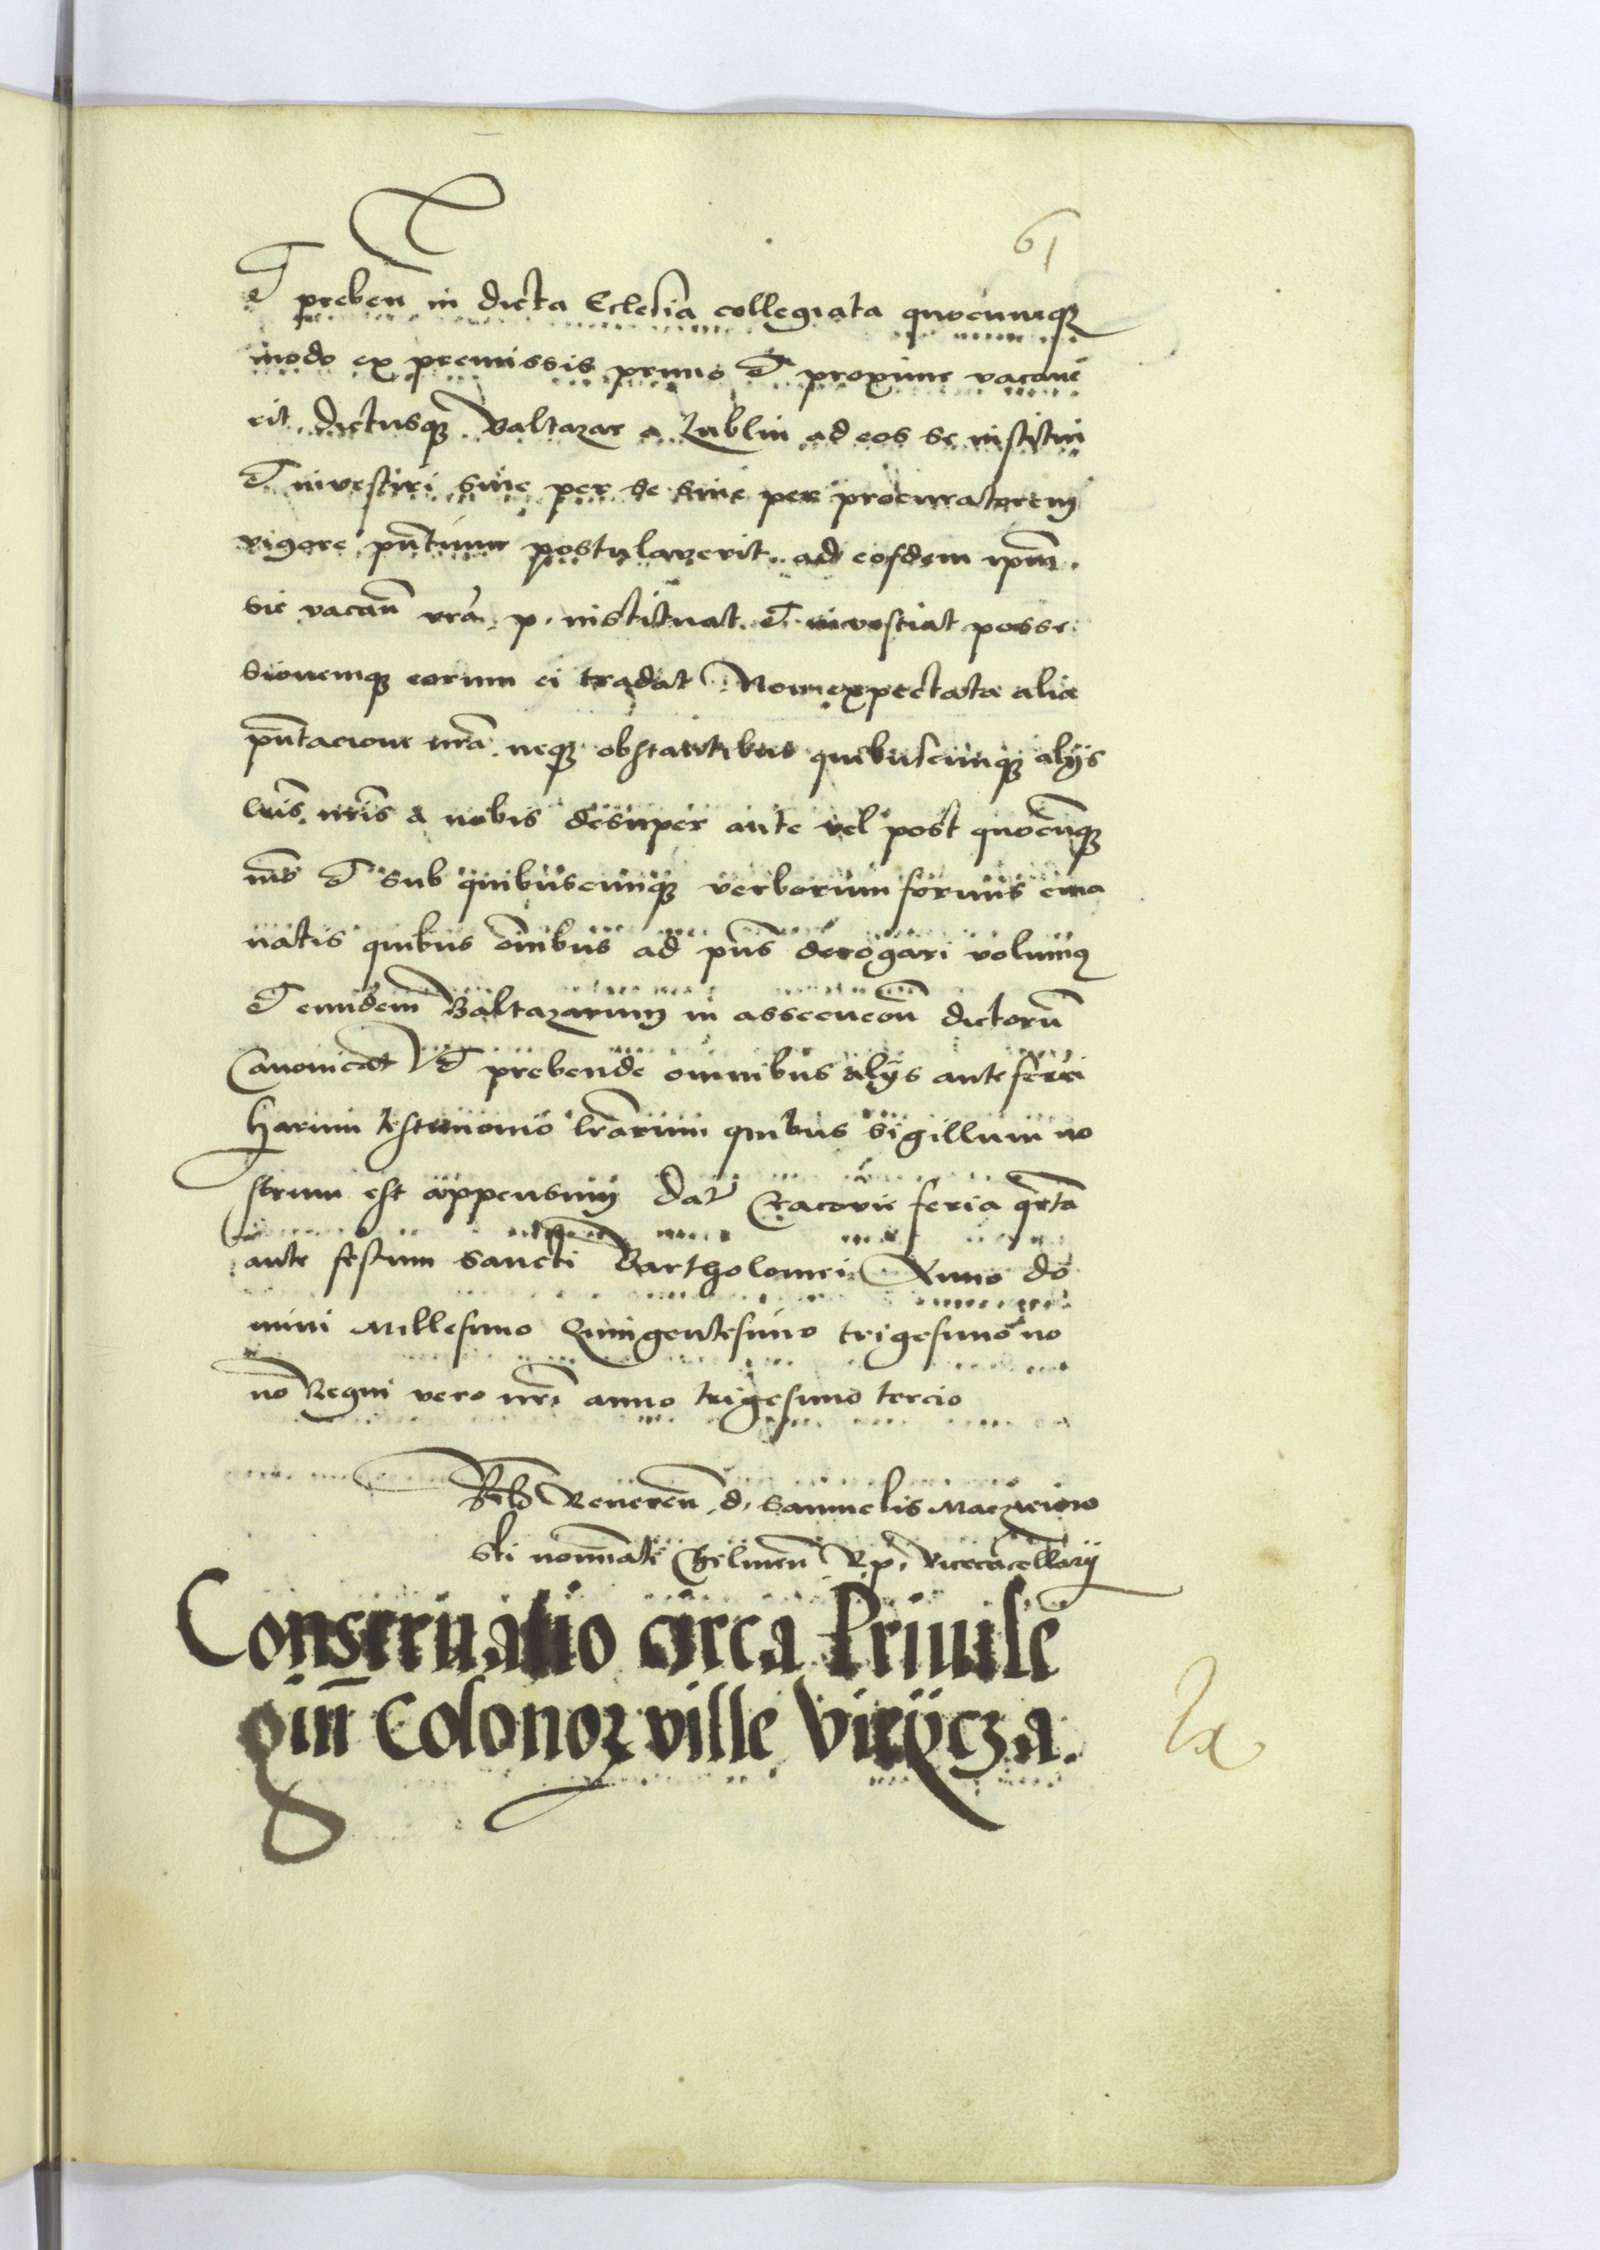 61
et preben̄ in dicta Eclesia collegiata quocumqꝫ
modo ex premissis primo et proxime vacaue
rit dictusqꝫ Baltazar a Lublin ad eos se institui
et inuestiri siue per se siue per procuratorem
vigore pn̄tium postulauerit ad eosdem ipm̄
sic vacan̄ vr̄a p. instituat et inuestiat posse
sionemqꝫ eorum ei tradat Non expectata alia
pn̄tacione nr̄a neqꝫ obstantibus quibuscumqꝫ alijs
lr̄is nr̄is a nobis desuper ante vel post quocūqꝫ
mō et sub quibuscumqꝫ verborum formis ema
natis quibus om̄ibus ad pn̄s derogari volumus
et eundem Baltazarum in assecucōn̄ dictorū
Canonicat et prebende omnibus alijs anteferri
harum testimonio lr̄arum quibus sigillum no
strum est appensum Dat Cracovie feria qrta
ante festum sancti Bartholomei Anno do
mini Millesimo Quingentesimo trigesimo no
no Regni vero nr̄i anno trigesimo tercio
Rlō Reueren̄ d. Samuelis Maczieiow
ski nominati Chelmen̄ R. p. Vicecācellarij
Conseruatio circa Priuile
giū Colonoꝝ ville Virÿcza.